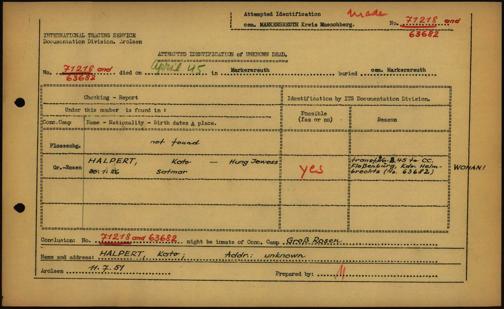 Attempted Identification made
cem. MARKERSREUTH Kreis Muenchberg. No. 71218 and
63682
INTERNATIONAL TRACING SERVICE
Documentation Division, Arolsen
ATTEMPTED IDENTIFICATION OF UNKNOWN DEAD.
No. 71218 and 63682 died on April 45 in Markersreuth buried cem. Markersreuth
Checking - Report
Identification by ITS Documentation Division.
Under this number is found in:
Possible (Yes or no)
Reason
Conc.Camp Name - Nationality - Birth dates & place.
Flossenbg. not found
Gr.-Rosen HALPERT, Kato — Hung Jewess yes
20.11.26 Satmar
transf. 6.3.45 to CC. Floßenbürg, Kdo Helmbrechts (No. 63682)
WOHAN!
Conclusion: No. 71218 and 63682 might be inmate of Conc. Camp Groß Rosen
Name and address: HALPERT, Kato; Addr: unknown
Arolsen 11.7.51 Prepared by: